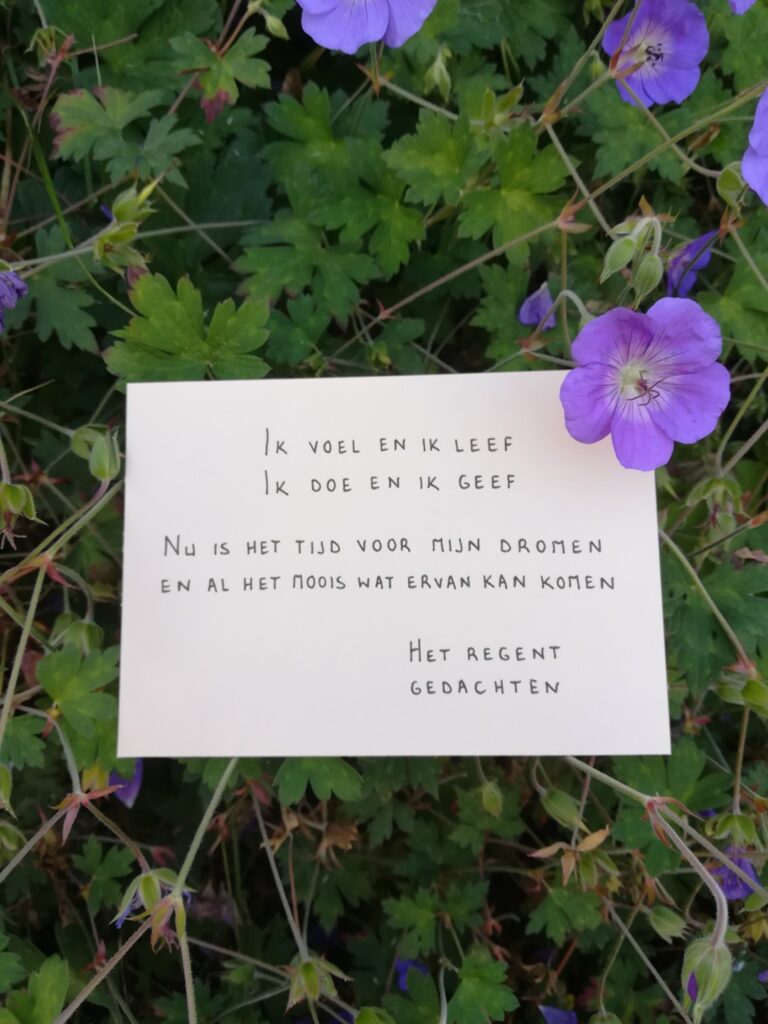 Ik voel en ik leef
Ik doe en ik geef
Nu is het tijd voor mijn dromen
en al het moois wat ervan kan komen
Het regent
gedachten